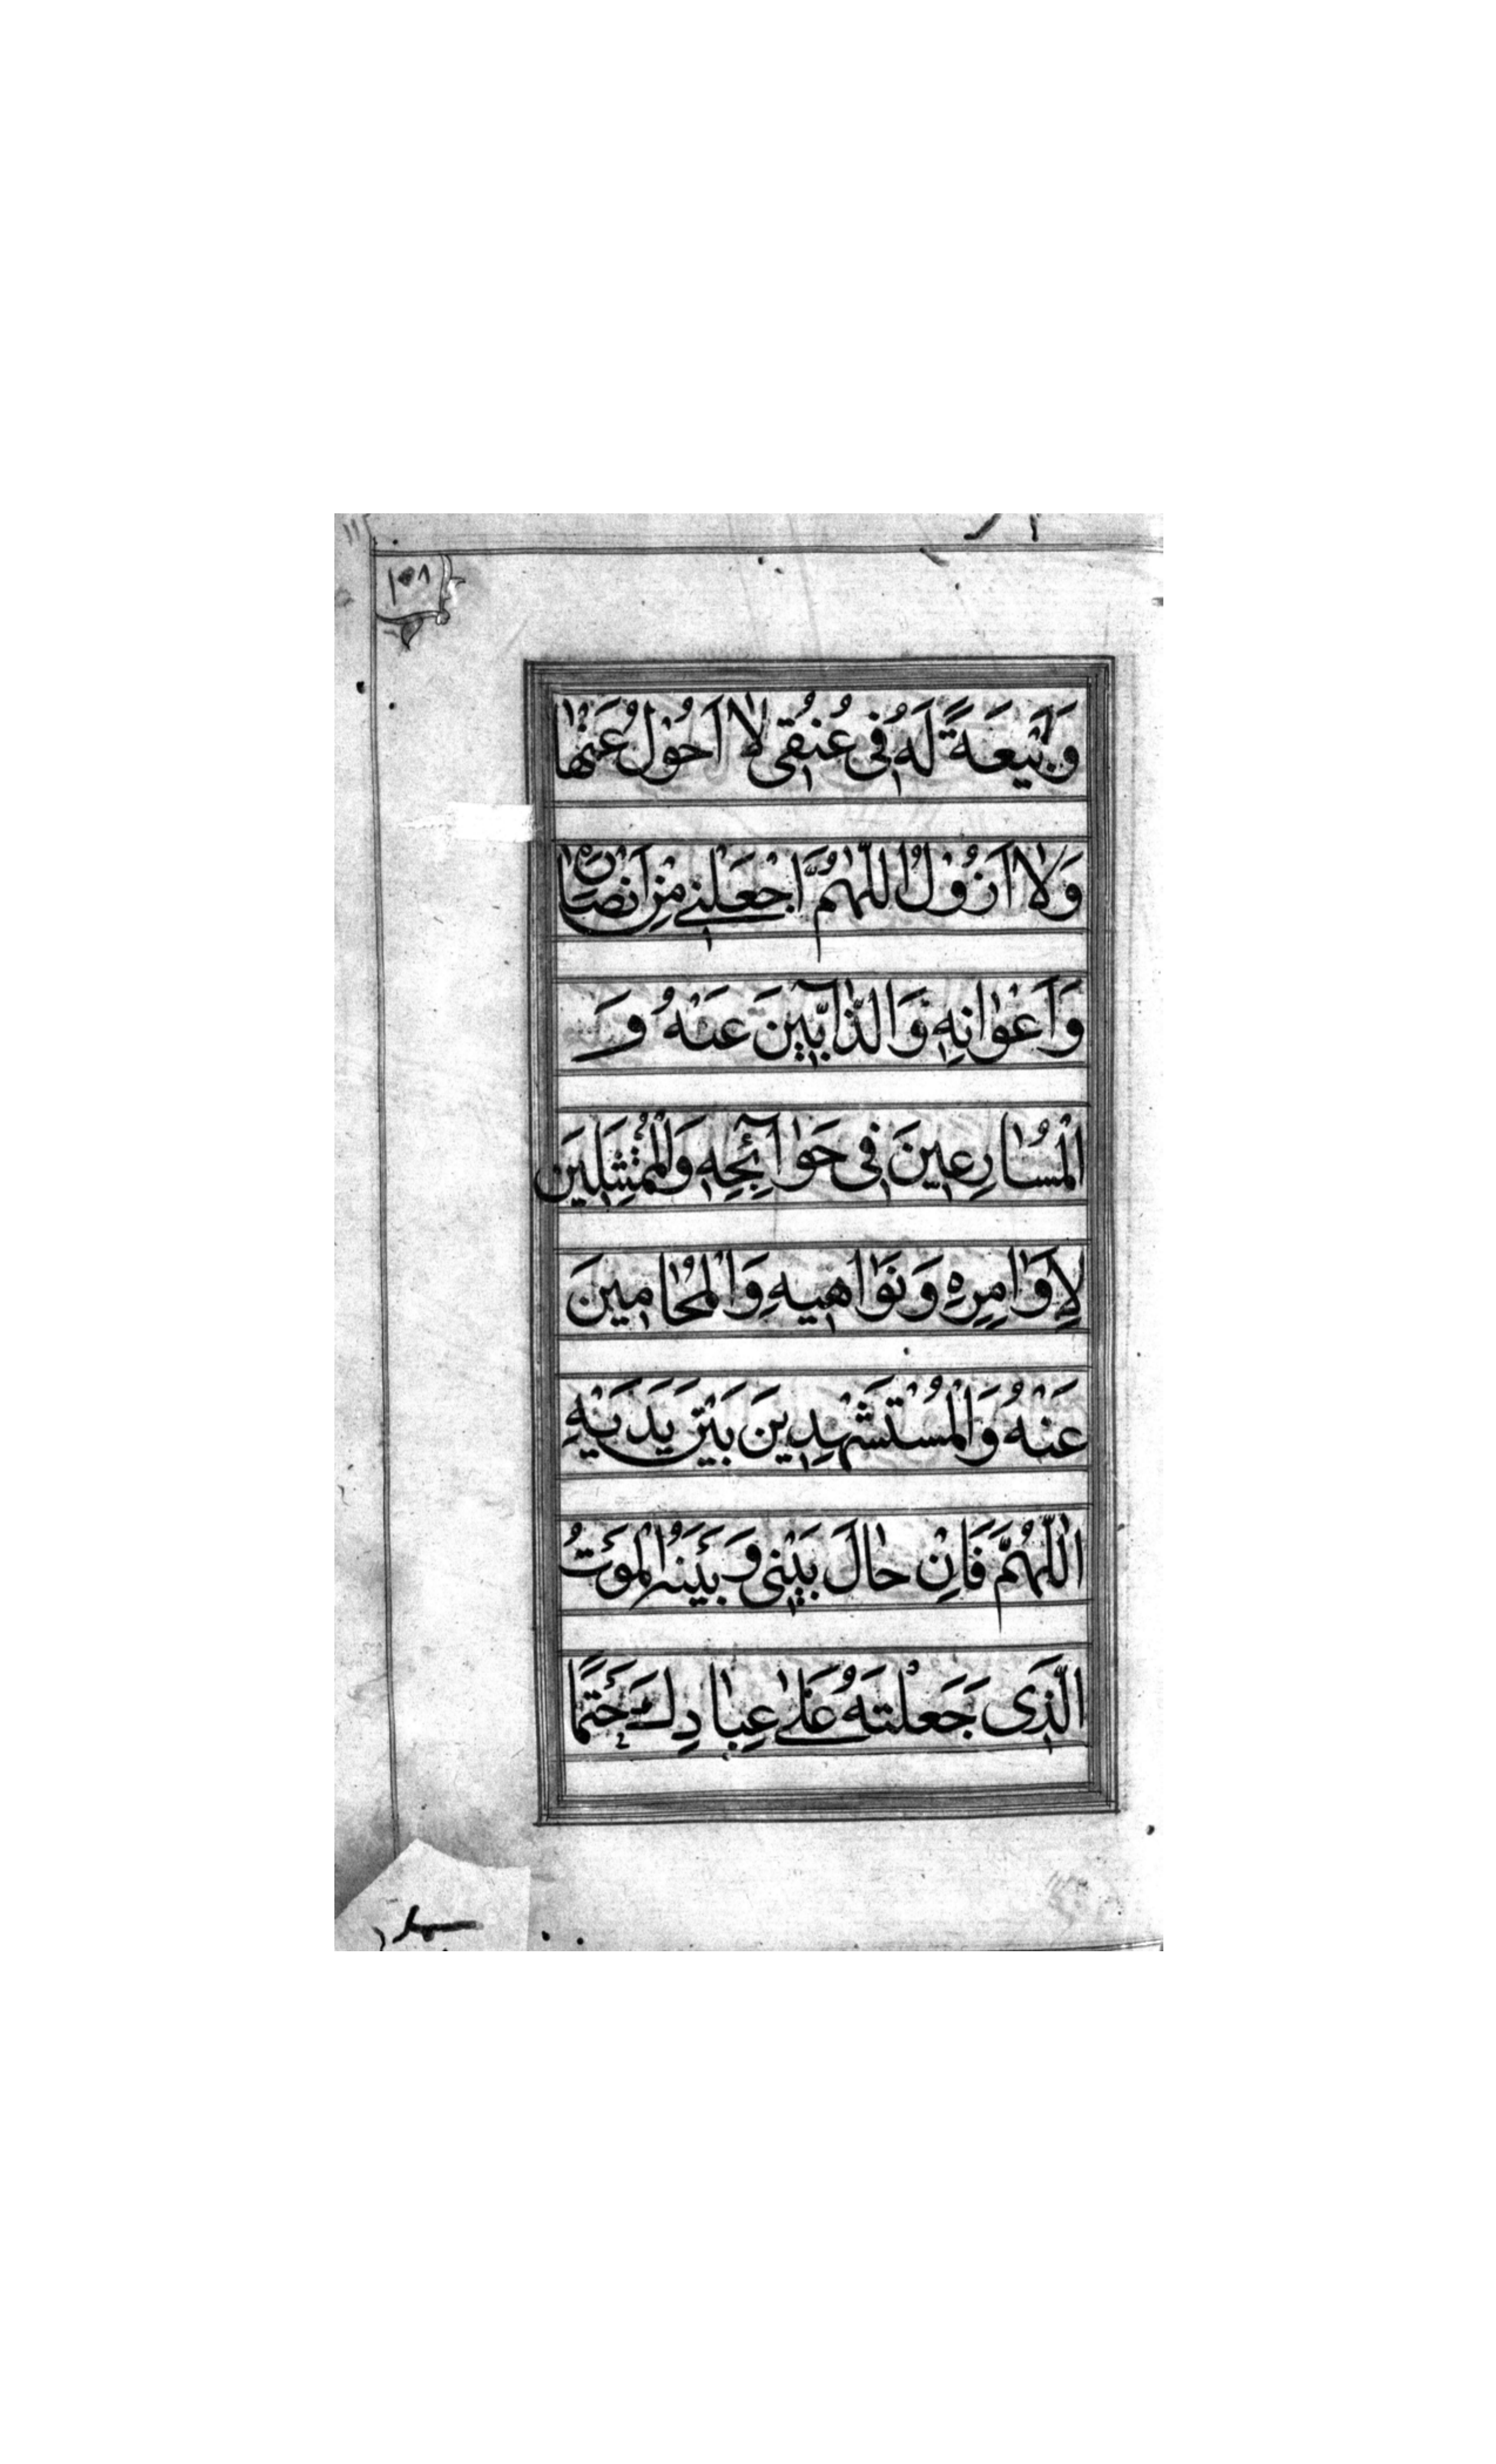 ١٠٨
وَبَيْعَةً لَهُ فِى عُنُقِى لَا اَحُوْلُ عَنْهَا
وَلَا اَزُوْلُ اَللّٰهُمَّ اجْعَلْنِى مِنْ اَنْصَارِهِ
وَاَعْوَانِهِ وَالذَّآبِّيْنَ عَنْهُ وَ
الْمُسَارِعِيْنَ فِى حَوَآئِجِهِ وَالْمُمْتَثِلِيْنَ
لِاَوَامِرِهِ وَنَوَاهِيْهِ وَالْمُحَامِيْنَ
عَنْهُ وَالْمُسْتَشْهَدِيْنَ بَيْنَ يَدَيْهِ
اَللّٰهُمَّ فَاِنْ حَالَ بَيْنِى وَبَيْنَهُ الْمَوْتُ
الَّذِى جَعَلْتَهُ عَلٰى عِبَادِكَ حَتْمًا